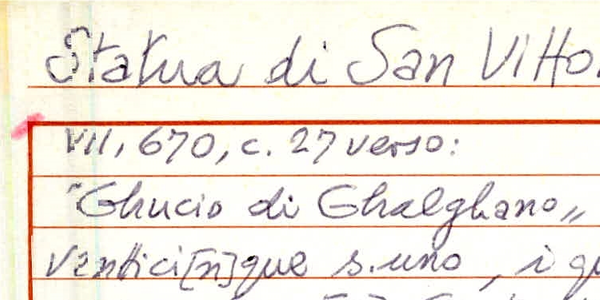 Statua di San Vitto
VII, 670, c. 27 verso:
"Ghucio di Ghalghano„
ventici[n]que s. uno, i